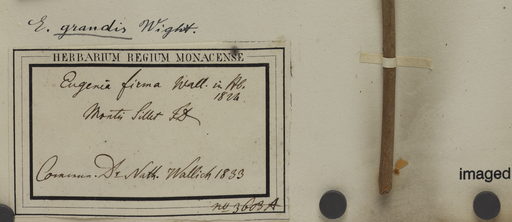 E. grandis Wight.
HERBARIUM REGIUM MONACENSE
Eugenia firma Wall. in Hb.
1824
Montis Sillet FD
Commun. Dr. Nath. Wallich 1833
no 3603 A
imaged